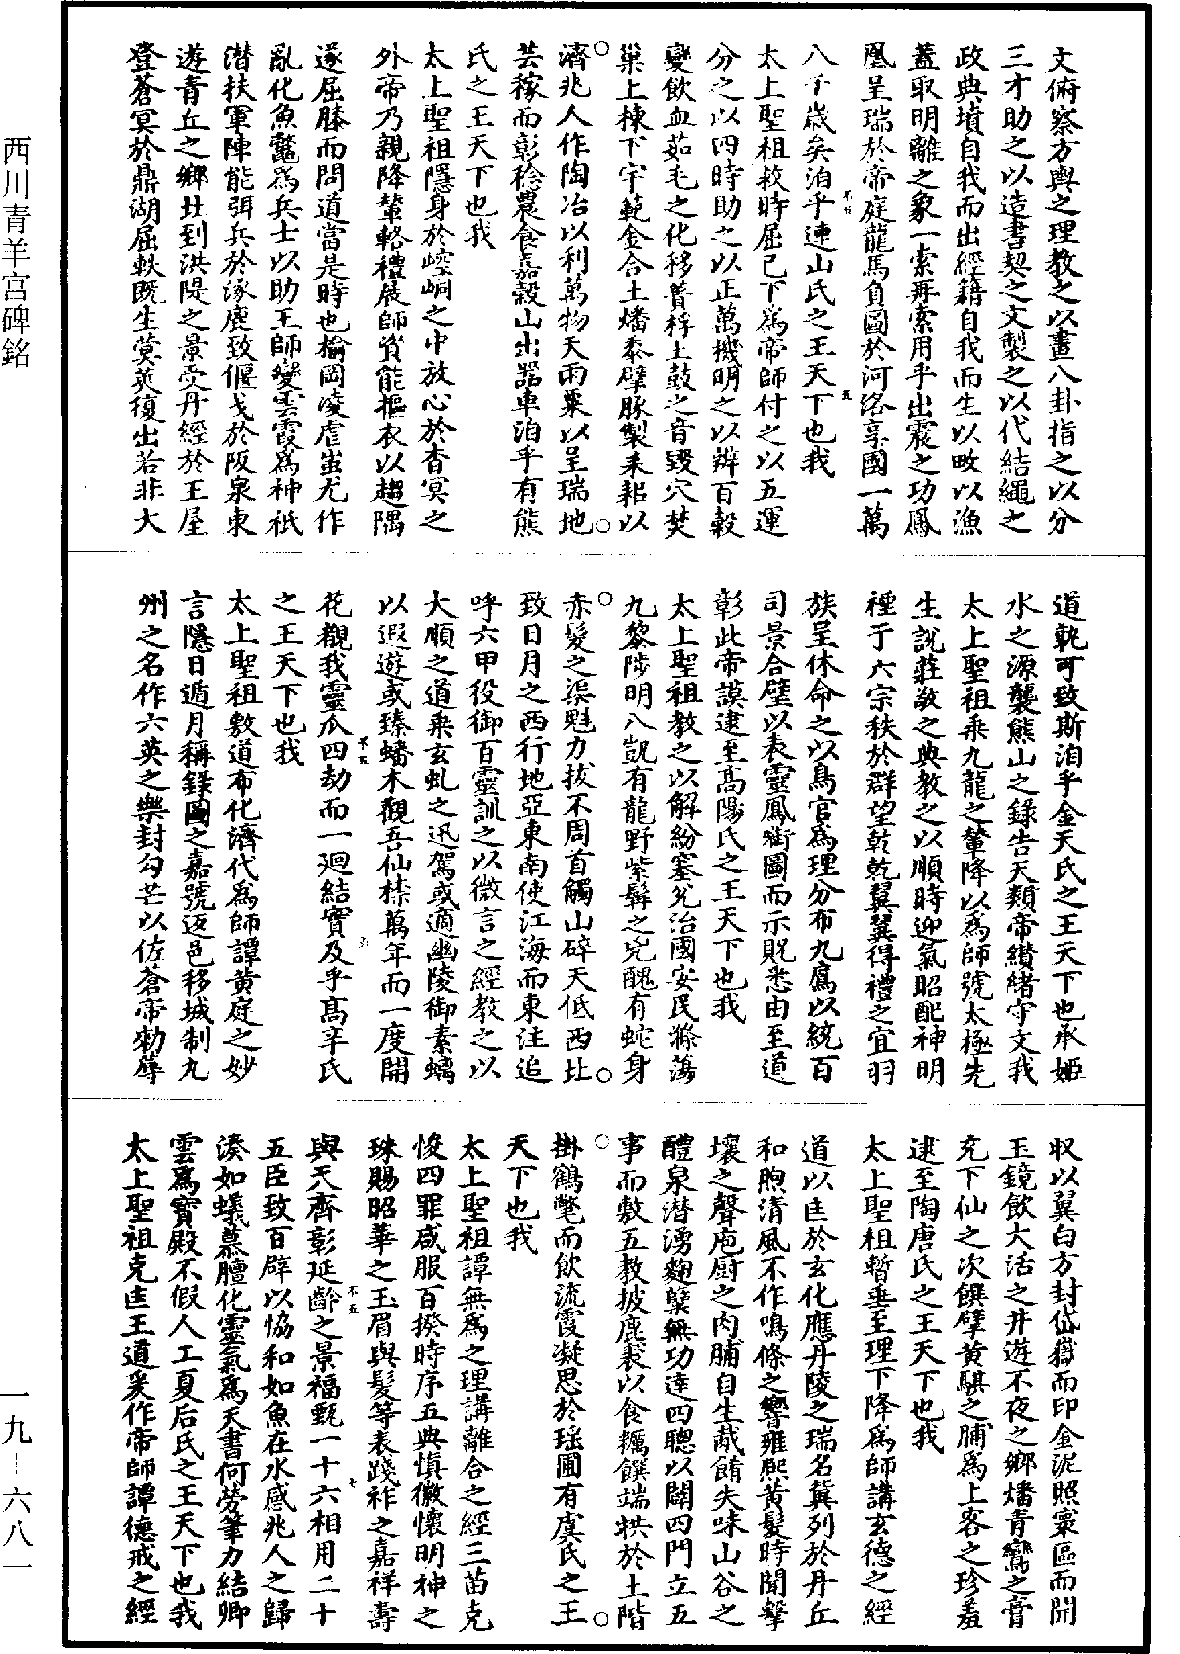 文俯察方輿之理教之以畫八卦指之以分
三才助之以造書契之文製之以代結繩之
政典墳自我而出經籍自我而生以畋以漁
蓋取明離之象一索再索用乎出震之功鳳
凰呈瑞於帝庭龍馬負圖於河洛享國一萬
八千歲矣洎乎連山氏之王天下也我
太上聖祖救時屈己下為帝師付之以五運
分之以四時助之以正萬機明之以辨百穀
變飲血茹毛之化移蕢桴土鼓之音毀穴焚
巢上棟下宇範金合土燔黍擘豚製耒耜以
濟兆人作陶冶以利萬物天雨粟以呈瑞地
芸稼而彰稔農食嘉穀山出器車洎乎有熊
氏之王天下也我
太上聖祖隱身於崆峒之中放心於杳冥之
外帝乃親降輦輅禮展師資能摳衣以趨隅
遂屈膝而問道當是時也榆岡凌虐蚩尤作
亂化魚鼈為兵士以助王師變雲霞為神祇
潛扶軍陣能弭兵於涿鹿致偃戈於阪泉東
遊青丘之鄉北到洪隄之景受丹經於王屋
登蒼冥於鼎湖屈軼既生蓂莢復出若非大
道孰可致斯洎乎金天氏之王天下也承姬
水之源襲熊山之錄告天類帝纘緒守文我
太上聖祖乘九龍之輦降以為師號太極先
生說莊敬之典教之以順時迎氣昭配神明
禋于六宗秩於群望乾乾翼翼得禮之宜羽
族呈休命之以鳥官為理分布九鳸以統百
司景合璧以表靈鳳銜圖而示貺悉由至道
彰此帝謨逮至高陽氏之王天下也我
太上聖祖教之以解紛塞兌治國安民滌蕩
九黎陟明八凱有龍野紫髯之兇醜有蛇身
赤髮之渠魁力拔不周首觸山碎天低西北
致日月之西行地亞東南使江海而東注追
呼六甲役御百靈訓之以微言之經教之以
大順之道乘玄虬之迅駕或適幽陵御素螭
以遐遊或臻蟠木觀吾仙椂萬年而一度開
花觀我靈瓜四劫而一迴結實及乎高辛氏
之王天下也我
太上聖祖敷道布化濟代為師譚黃庭之妙
言隱日遁月稱錄圖之嘉號返邑移城制九
州之名作六英之樂封勾芒以佐蒼帝勑蓐
収以翼白方封岱嶽而印金泥照寰區而開
玉鏡飲大活之井遊不夜之鄉燔青鸞之膏
充下仙之次饌擘黃騏之脯為上客之珍羞
逮至陶唐氏之王天下也我
太上聖祖暫垂至理下降為師講玄德之經
道以匡於玄化應丹陵之瑞名冀列於丹丘
和煦清風不作鳴條之響雍熙黃髮時聞擊
壤之聲庖廚之肉脯自生胾餚失味山谷之
醴泉潛湧麴糵無功達四聰以闢四門立五
事而敷五教披鹿裘以食糲饌端拱於土階
掛鶴氅而飲流霞凝思於瑤圃有虞氏之王
天下也我
太上聖祖譚無為之理講離合之經三苗克
悛四罪咸服百揆時序五典慎徽懷明神之
珠賜昭華之玉眉與髮等表踐祚之嘉祥壽
與天齊彰延齡之景福甄一十六相用二十
五臣致百辟以恊和如魚在水感兆人之歸
湊如蟻慕膻化靈氣為天書何勞筆力結卿
雲為寶殿不假人工夏后氏之王天下也我
太上聖祖克匡王道爰作帝師譚德戒之經
西川青羊宮碑銘
一九—六八一